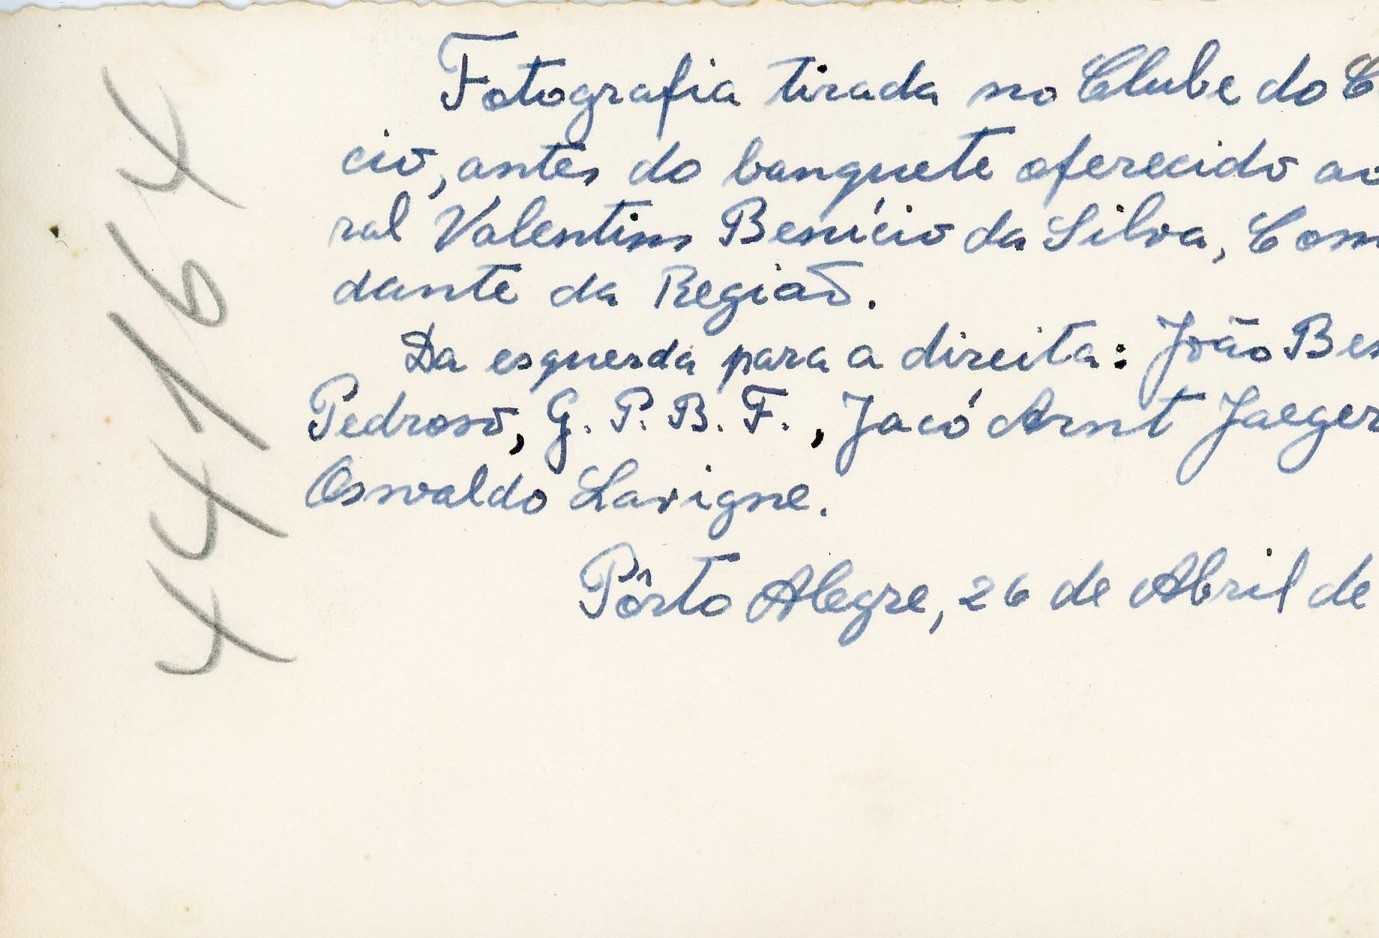 Fotografia tirada no Clube do C
cio, antes do banquete oferecido ao
ral Valentim Benício da Silva, Com
dante da Região.
Da esquerda para a direita: João Be
Pedroso, G. P. B. F., Jacó Arnt Jaeger
Oswaldo Lavigne.
Pôrto Alegre, 26 de Abril de